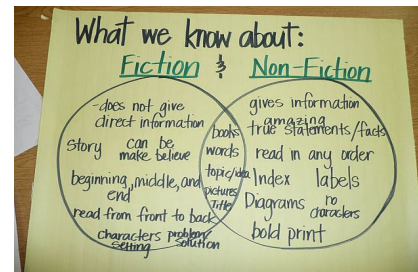 What we know about:
Fiction & Non-Fiction
-does not give
direct information
Story can be
make believe
beginning, middle, and
end
read from front to back
characters problem/
setting solution
books
words
topic/idea
pictures
Title
gives information
amazing
true statements/facts
read in any order
Index labels
Diagrams no
characters
bold print